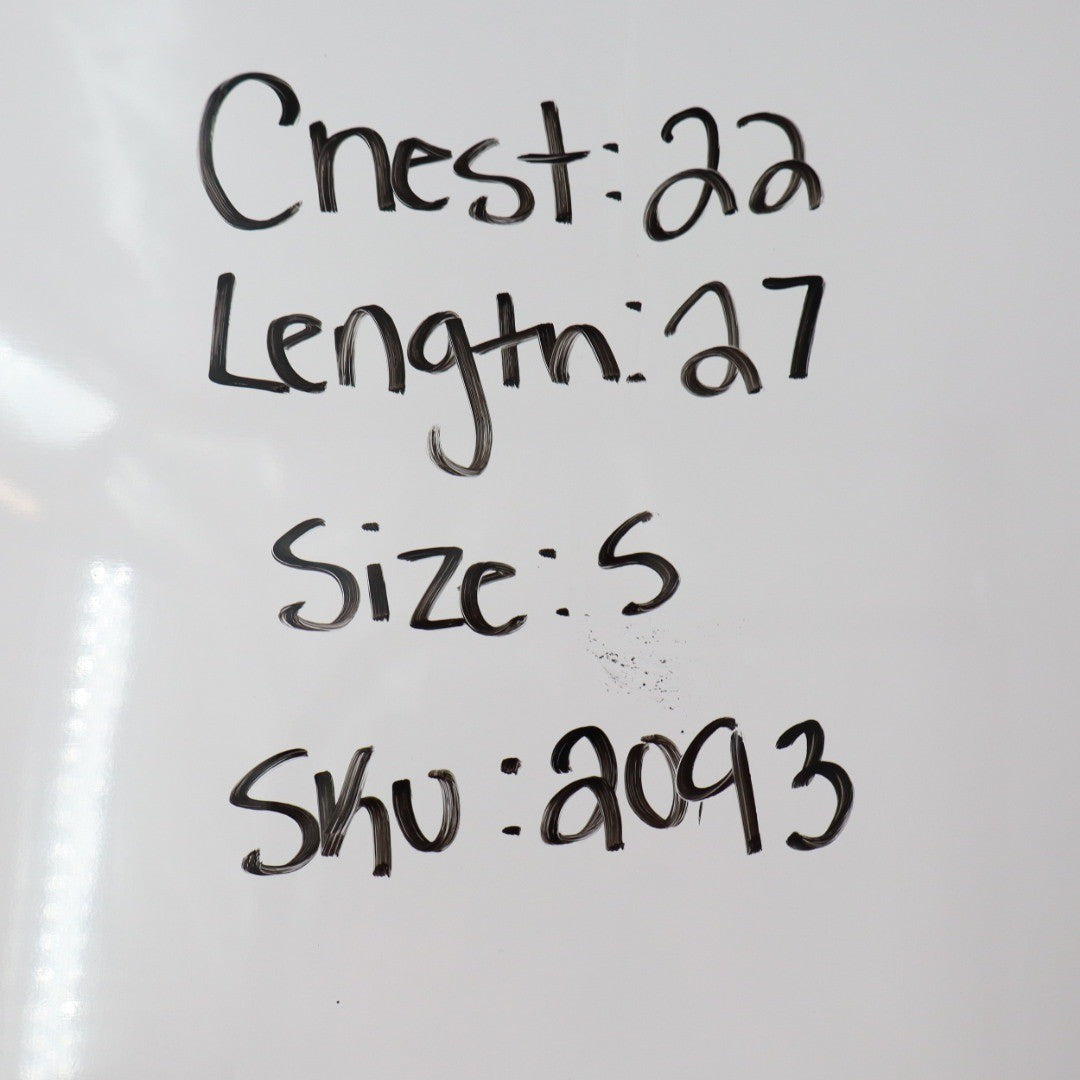 Chest: 22
Length: 27
Size: S
SKU: 2093